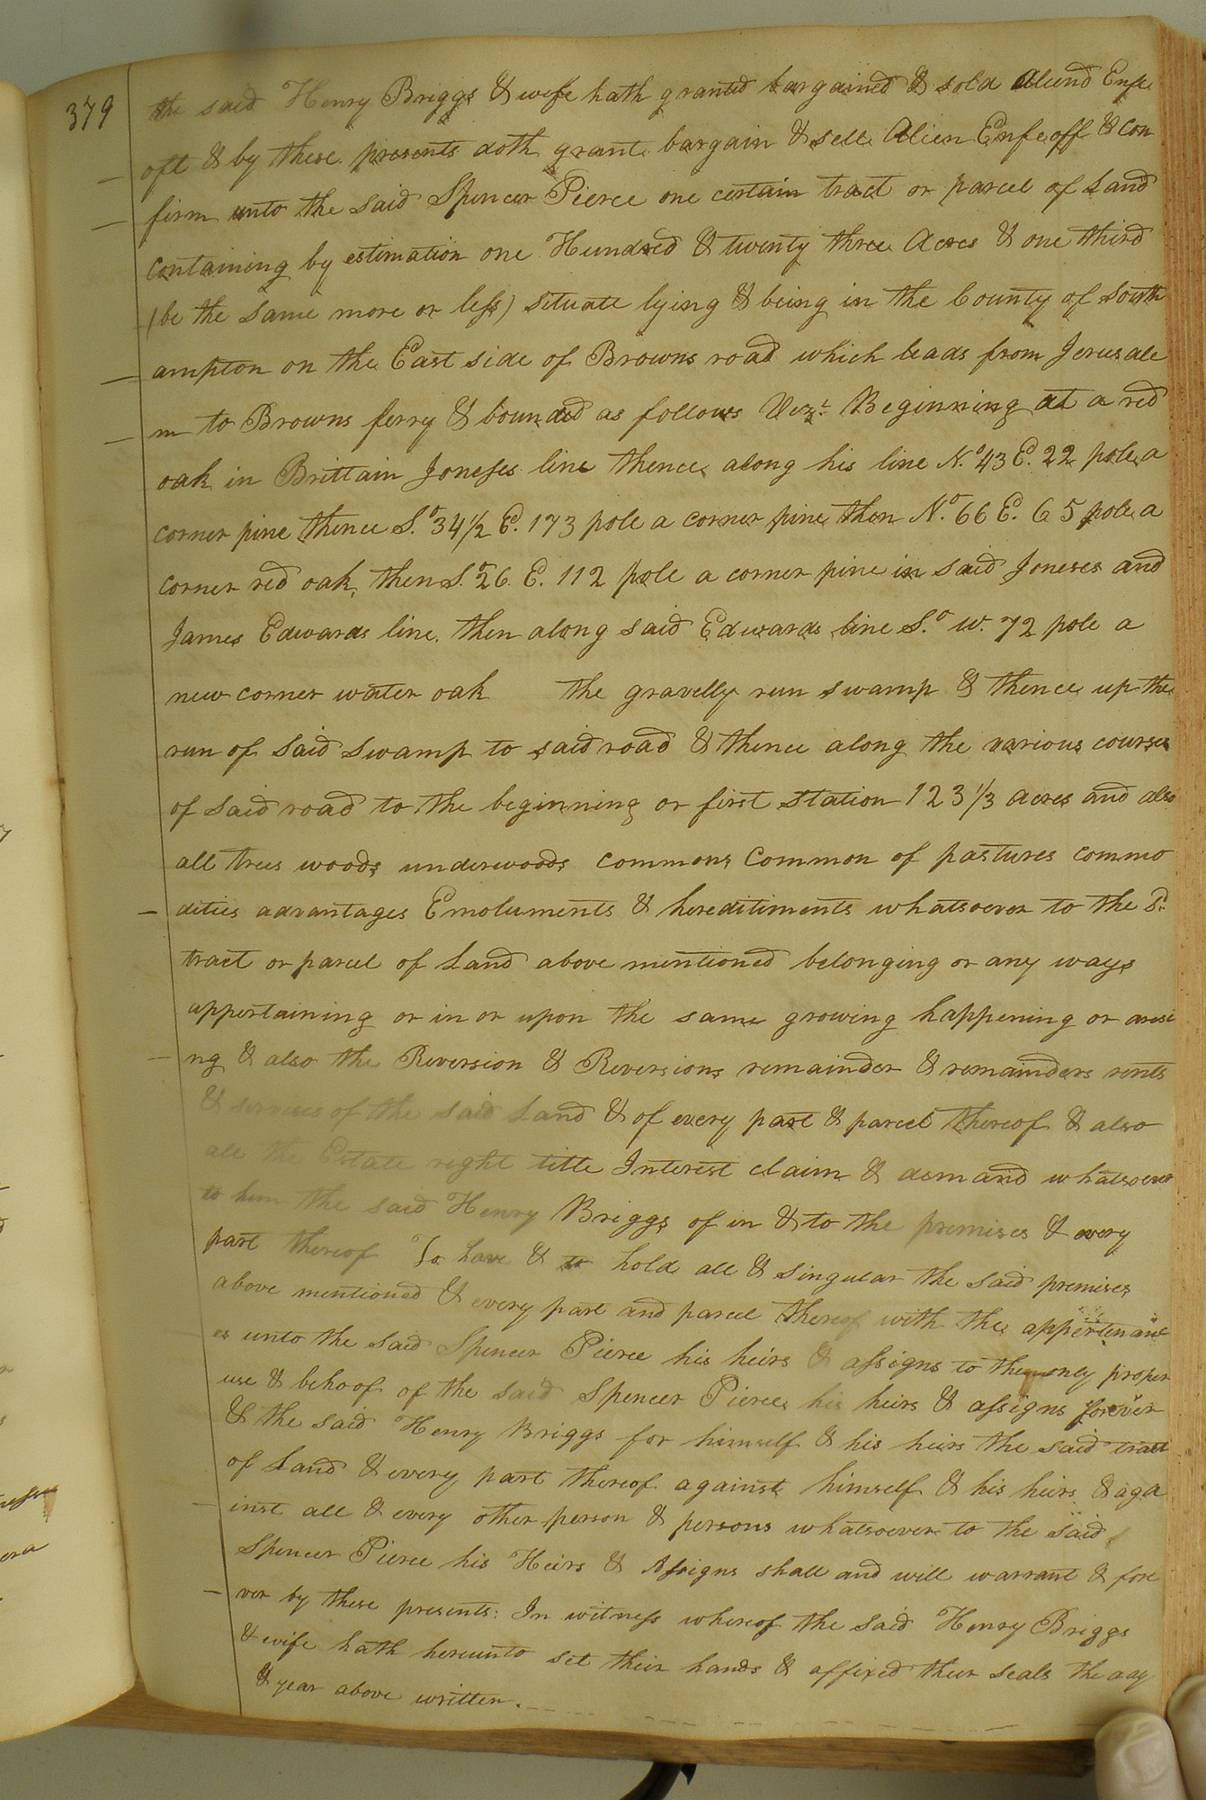 379
the said Henry Briggs & wife hath granted bargained & sold aliend Enfe
oft & by these presents doth grant bargain & sell Alien Enfeoff & Con
firm unto the said Spencer Pierce one certain tract or parcel of Land
containing by estimation one Hundred & twenty three Acres & one third
(be the same more or less) situate lying & being in the County of South
ampton on the East side of Browns road which leads from Jerusale
m to Browns ferry & bounded as follows Vizt. Beginning at a red
oak in Brittain Joneses line thence along his line No. 43 E. 22 pole a
corner pine thence So. 34 1/2 E. 173 pole a corner pine then No. 66 E. 65 pole a
corner red oak, then So. 26 E. 112 pole a corner pine in said Joneses and
James Edwards line, then along said Edwards line So. W. 72 pole a
new corner water oak the gravelly run swamp & thence up the
run of said swamp to said road & thence along the various courses
of said road to the beginning or first station 123 1/3 acres and also
all trees woods underwoods commons Common of pastures commo
dities advantages Emoluments & hereditiments whatsoever to the sd.
tract or parcel of Land above mentioned belonging or any ways
appertaining or in or upon the same growing happening or arisi
ng & also the Reversion & Reversions remainder & remainders rents
& services of the said Land & of every part & parcel thereof & also
all the Estate right title Interest claim & demand whatsoever
to him the said Henry Briggs of in & to the premises & every
part thereof To have & to hold all & singular the said premises
above mentioned & every part and parcel thereof with the appertenanc
es unto the said Spencer Pierce his heirs & assigns to the only proper
use & behoof of the said Spencer Pierce his heirs & assigns forever
& the said Henry Briggs for himself & his heirs the said tract
of Land & every part thereof against himself & his heirs & aga
inst all & every other person & persons whatsoever to the said
Spencer Pierce his Heirs & Assigns shall and will warrant & fore
ver by these presents: In witness whereof the said Henry Briggs
& wife hath hereunto set their hands & affixed their seals the day
& year above written.